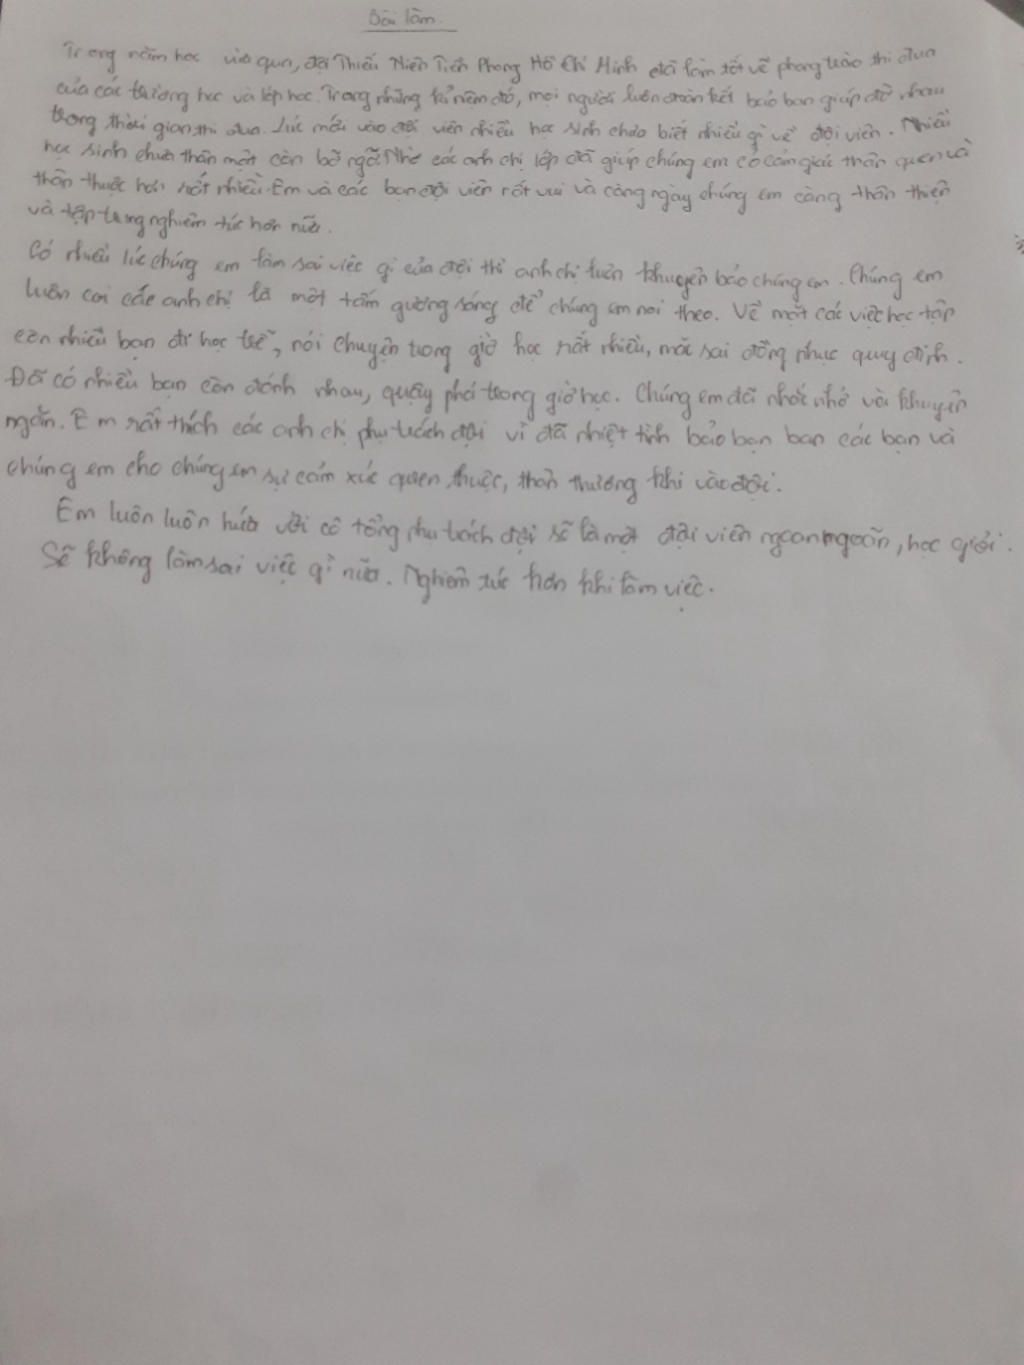 Bài làm.
Trong năm học vừa qua, đội Thiếu Niên Tiền Phong Hồ Chí Minh đã làm tốt về phong trào thi đua
của các trường học và lớp học. Trong những kỉ niệm đó, mọi người luôn đoàn kết bảo ban giúp đỡ nhau
trong thời gian thi đua. Lúc mới vào đội viên nhiều học sinh chưa biết nhiều gì về đội viên. Nhiều
học sinh chưa thân mật còn bỡ ngỡ. Nhờ các anh chị lớp đã giúp chúng em có cảm giác thân quen và
thân thuộc hơn rất nhiều. Em và các bạn đội viên rất vui và càng ngày chúng em càng thân thiện
và tập trung nghiêm túc hơn nữa.
Có nhiều lúc chúng em làm sai việc gì của đội thì anh chị luôn khuyên bảo chúng em. Chúng em
luôn coi các anh chị là một tấm gương sáng để chúng em noi theo. Về mặt các việc học tập
còn nhiều bạn đi học trễ, nói chuyện trong giờ học rất nhiều, mặc sai đồng phục quy định.
Đã có nhiều bạn còn đánh nhau, quậy phá trong giờ học. Chúng em đã nhắc nhở và khuyên
ngăn. Em rất thích các anh chị phụ trách đội vì đã nhiệt tình bảo bạn ban các bạn và
chúng em cho chúng em sự cảm xúc quen thuộc, thân thương khi vào đội.
Em luôn luôn hứa với cô tổng phụ trách đội sẽ là một đội viên ngoan ngoãn, học giỏi.
Sẽ không làm sai việc gì nữa. Nghiêm túc hơn khi làm việc.